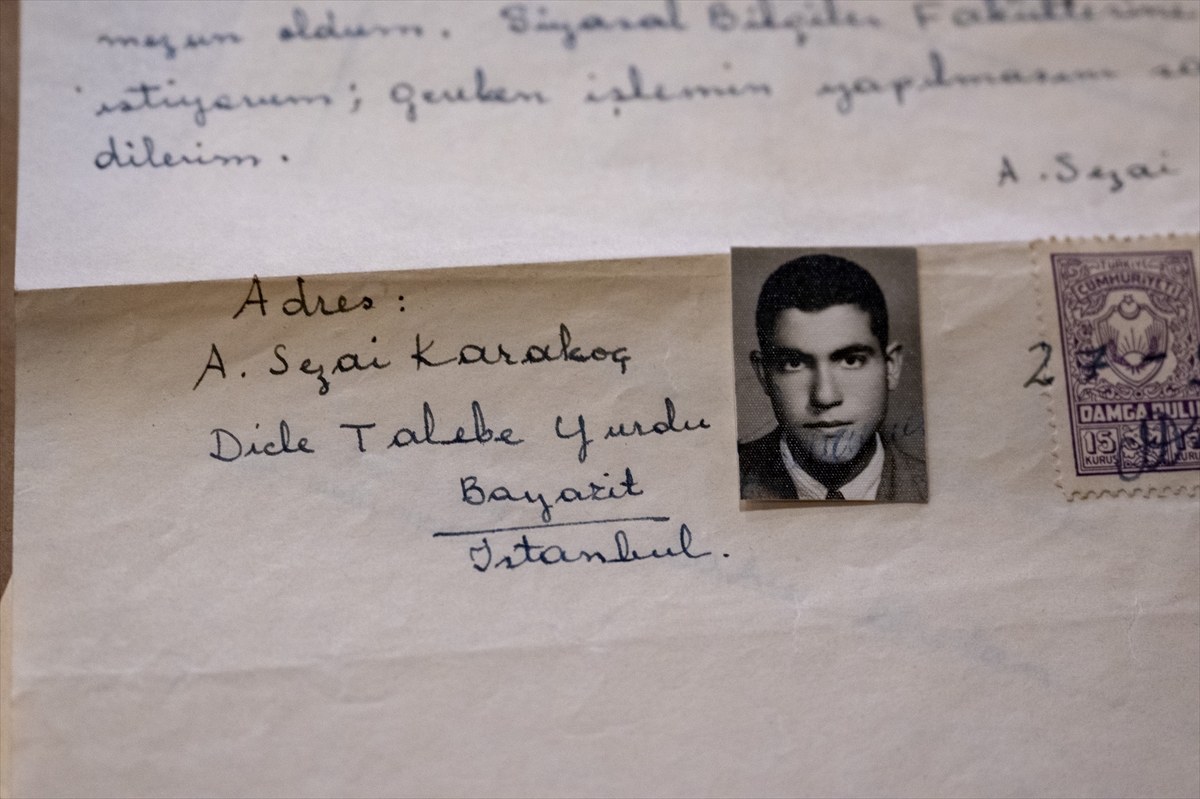 mezun oldum. Siyasal Bilgiler Fakültesine
istiyorum; gereken işlemin yapılmasını
dilerim.
A. Sezai
Adres:
A. Sezai Karakoç
Dicle Talebe Yurdu
Bayazit
İstanbul.
TÜRKİYE
CUMHURİYETİ
27-
DAMGA PULU
15
KURUŞ